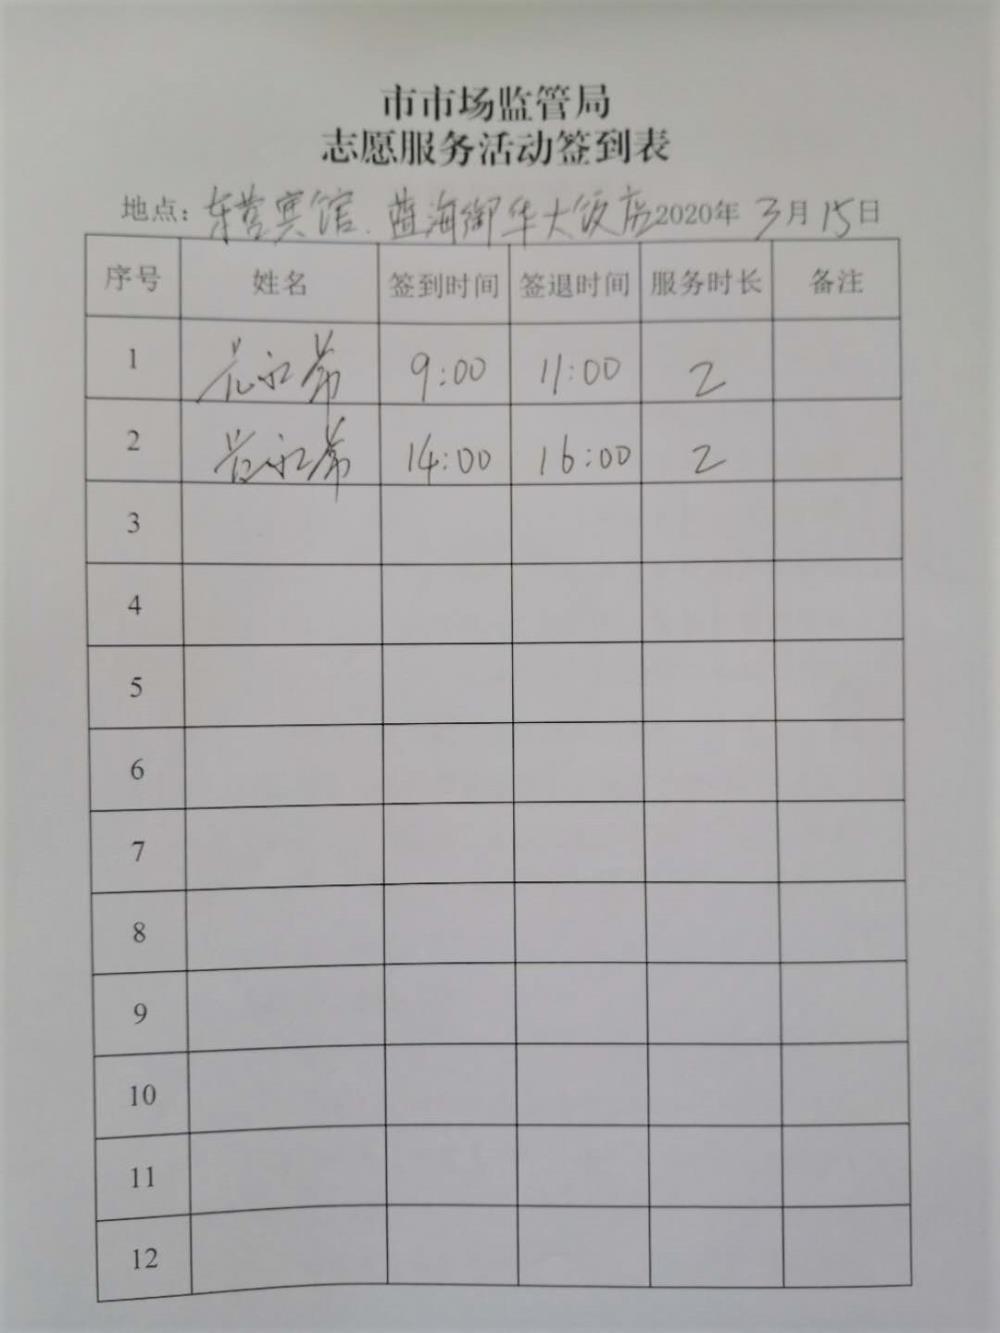 市市场监管局
志愿服务活动签到表
地点: 东营宾馆、蓝海御华大饭店 2020年 3月 15日
序号 姓名 签到时间 签退时间 服务时长 备注
1 永 9:00 11:00 2
2 永 14:00 16:00 2
3
4
5
6
7
8
9
10
11
12